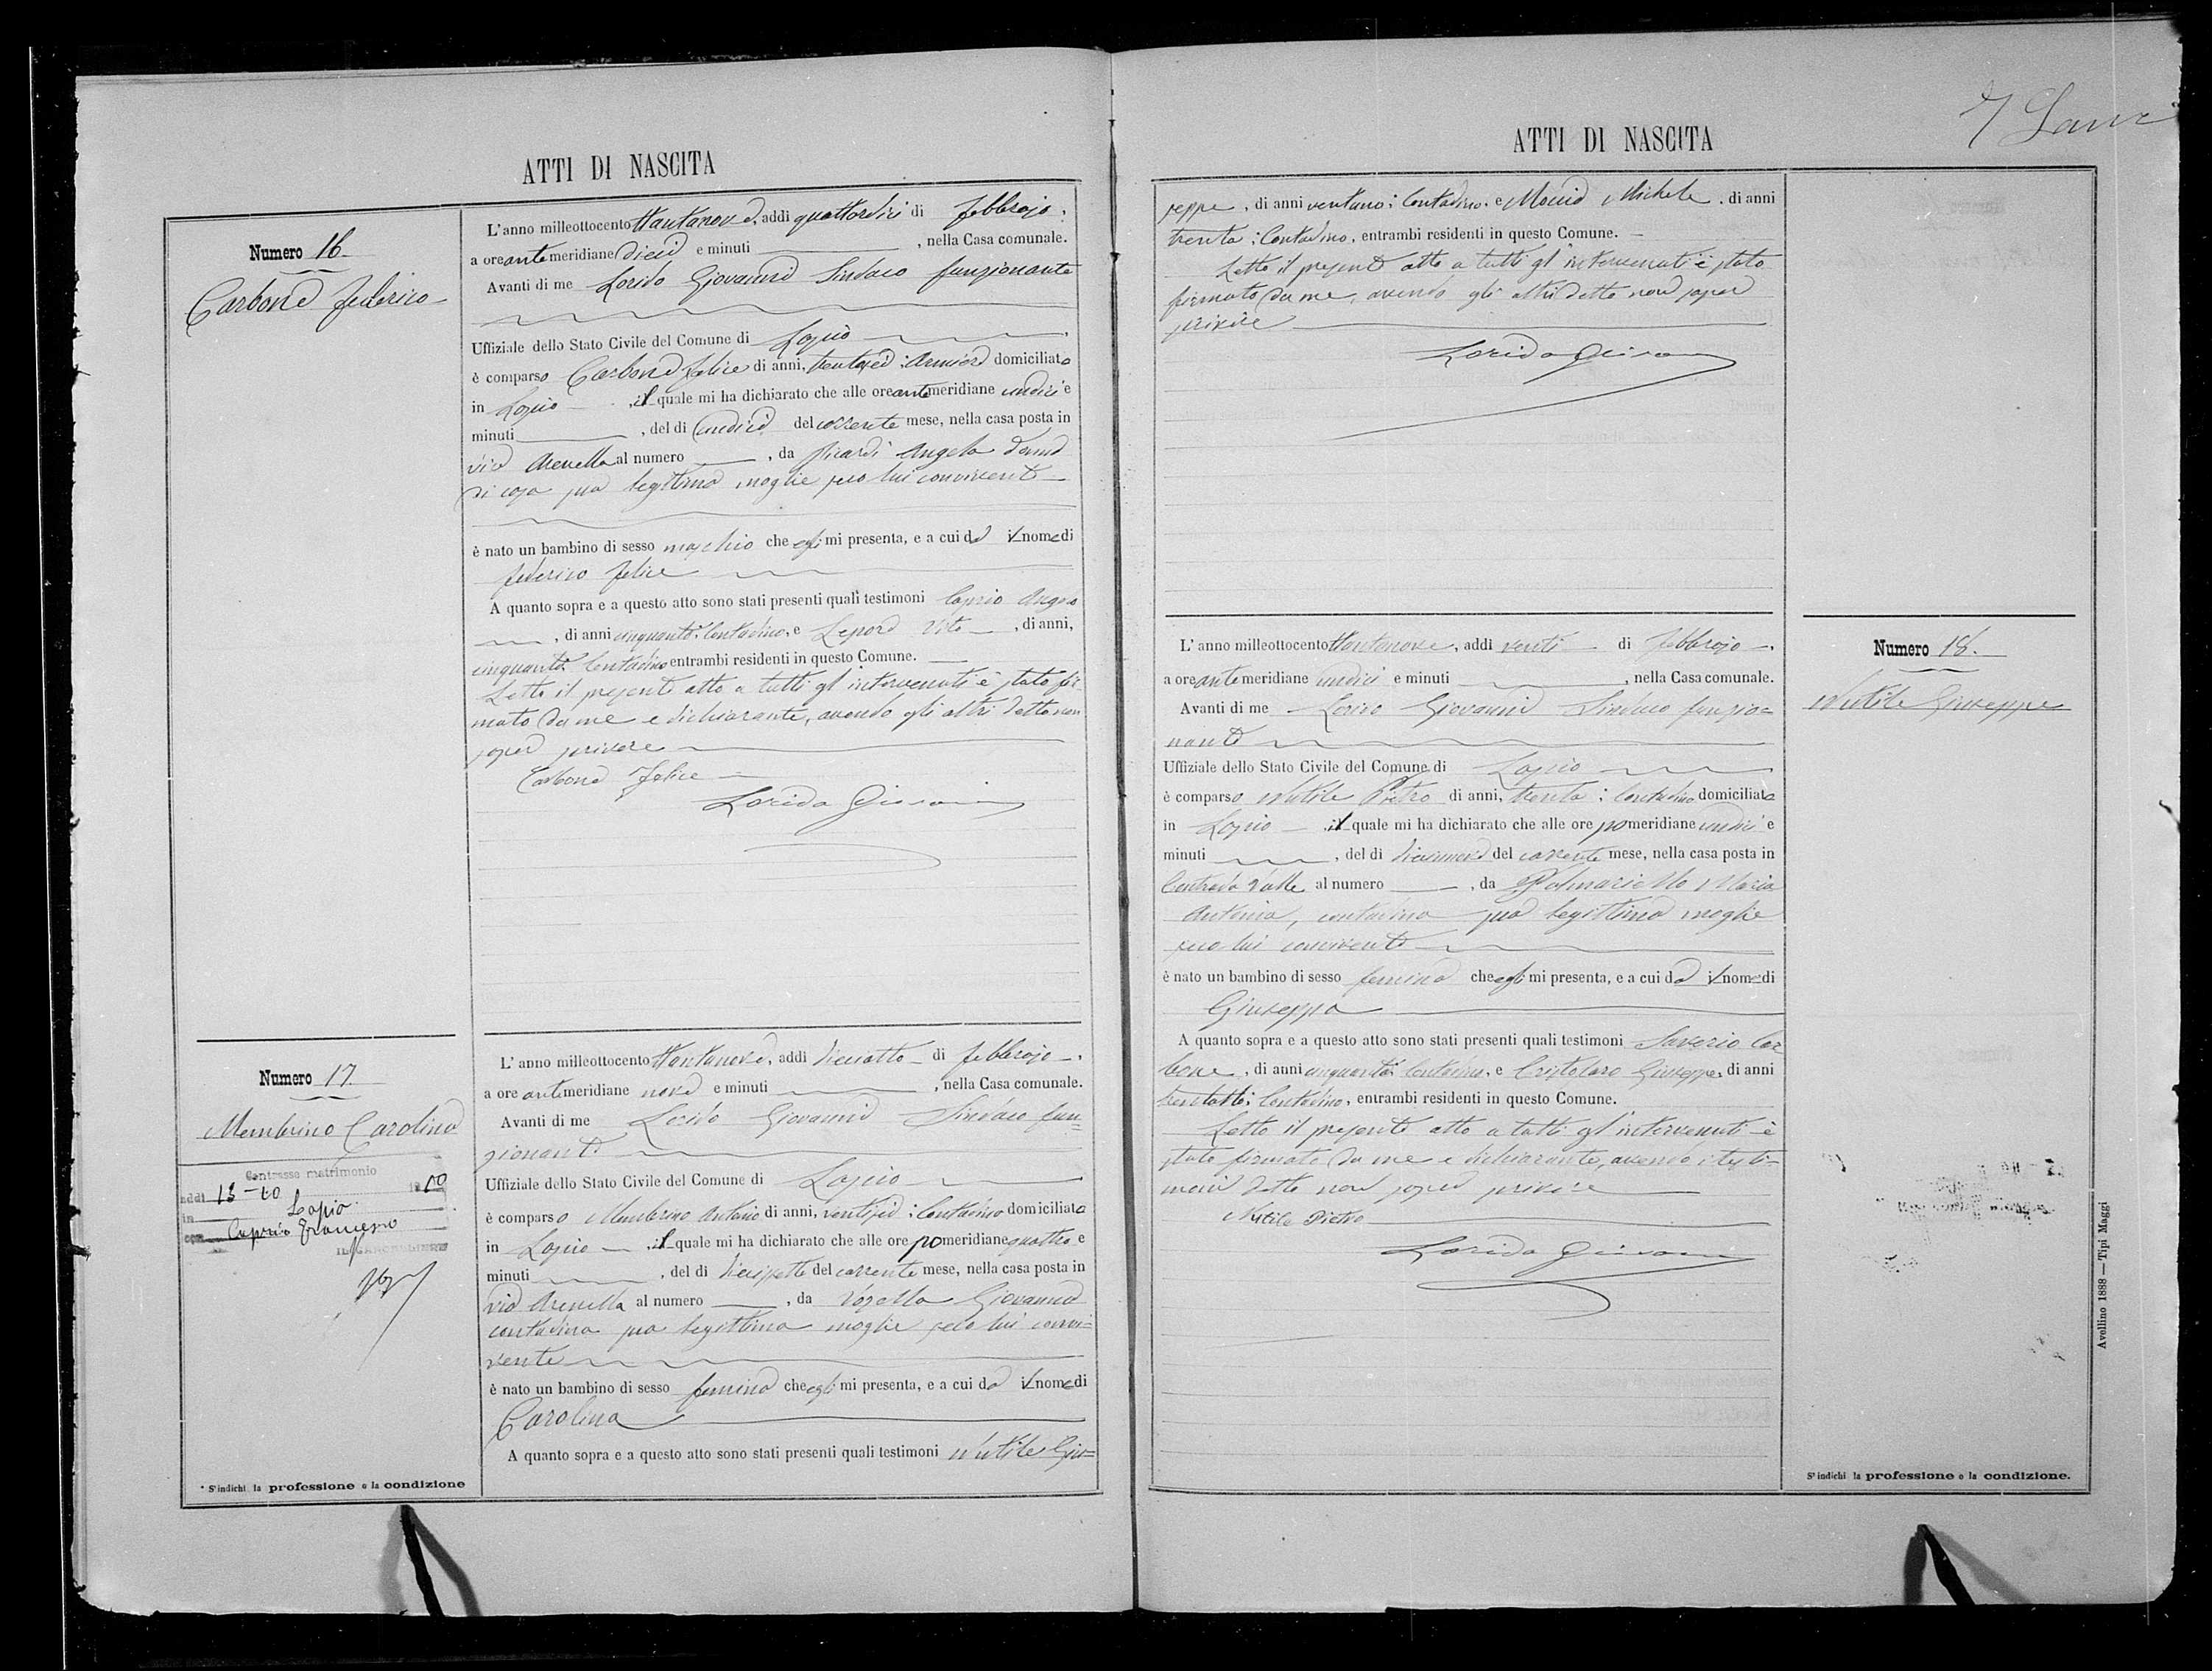 ATTI DI NASCITA
Numero 16.
Carbone Federico
L'anno milleottocento ottantanove, addì quattordici di Febbrajo,
a ore antemeridiane dieci e minuti , nella Casa comunale.
Avanti di me Lorido Giovanni Sindaco funzionante
Uffiziale dello Stato Civile del Comune di Lapio
è comparso Carbone Felice di anni, trentasei; domiciliato
in Lapio , il quale mi ha dichiarato che alle ore antemeridiane undici e
minuti , del dì undici del corrente mese, nella casa posta in
via Arenella al numero , da Picardi Angela donna
di casa sua legittima moglie seco lui convivente
è nato un bambino di sesso maschio che egli mi presenta, e a cui dà il nome di
Federico Felice
A quanto sopra e a questo atto sono stati presenti quali testimoni Caprio Angelo
, di anni cinquanta; Contadino, e Lepore Vito , di anni,
cinquanta Contadino entrambi residenti in questo Comune.
Letto il presente atto a tutti gl'intervenuti è stato fir-
mato da me e dichiarante, avendo gli altri detto non
saper scrivere
Carbone Felice
Lorido Giovanni
Numero 17.
Membrino Carolina
Contrasse matrimonio
addì 13-10
in Lapio
con Caprio Francesco
L'anno milleottocento ottantanove, addì diciotto di Febbrajo,
a ore antemeridiane nove e minuti , nella Casa comunale.
Avanti di me Lorido Giovanni Sindaco fun=
zionante
Uffiziale dello Stato Civile del Comune di Lapio
è comparso Membrino Antonio di anni, ventisei; Contadino domiciliato
in Lapio , il quale mi ha dichiarato che alle ore pomeridiane quattro e
minuti , del dì diecisette del corrente mese, nella casa posta in
via Arenella al numero , da Vozella Giovanna
contadina sua legittima moglie seco lui convi-
vente
è nato un bambino di sesso femina che egli mi presenta, e a cui dà il nome di
Carolina
A quanto sopra e a questo atto sono stati presenti quali testimoni Nutile Giu=
* S'indichi la professione o la condizione
ATTI DI NASCITA
7
seppe, di anni ventuno; Contadino, e Michele, di anni
trenta; Contadino, entrambi residenti in questo Comune.
Letto il presente atto a tutti gl'intervenuti è stato
firmato da me, avendo gli altri detto non saper
scrivere
Lorido Giovanni
Numero 18.
Nutile Giuseppa
L'anno milleottocento ottantanove, addì venti di Febbrajo,
a ore antemeridiane undici e minuti , nella Casa comunale.
Avanti di me Lorido Giovanni Sindaco funzio=
nante
Uffiziale dello Stato Civile del Comune di Lapio
è comparso Nutile Pietro di anni, trenta; Contadino domiciliato
in Lapio , il quale mi ha dichiarato che alle ore pomeridiane undici e
minuti , del dì diciannove del corrente mese, nella casa posta in
Contrada Valle al numero , da Polmariello Maria
Antonia, contadina sua legittima moglie
seco lui convivente
è nato un bambino di sesso femina che egli mi presenta, e a cui dà il nome di
Giuseppa
A quanto sopra e a questo atto sono stati presenti quali testimoni Saverio Car
bone, di anni cinquanta; Contadino, e Cristofaro Giuseppe, di anni
trentotto; Contadino, entrambi residenti in questo Comune.
Letto il presente atto a tutti gl'intervenuti è
stato firmato da me e dichiarante, avendo i testi-
moni detto non saper scrivere
Nutile Pietro
Lorido Giovanni
S'indichi la professione o la condizione.
Avellino 1888 — Tipi Maggi